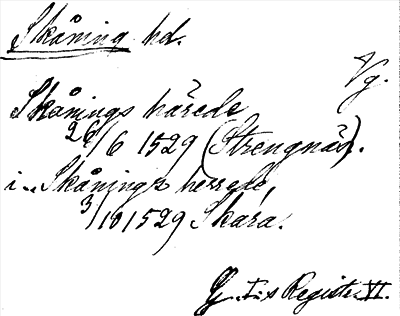 Skåning hd.
Vg.
Skånings härede
26/6 1529 (Strengnäs).
i.. Skånings herrede,
3/10 1529 Skara.
G. I:s Registr. VI.